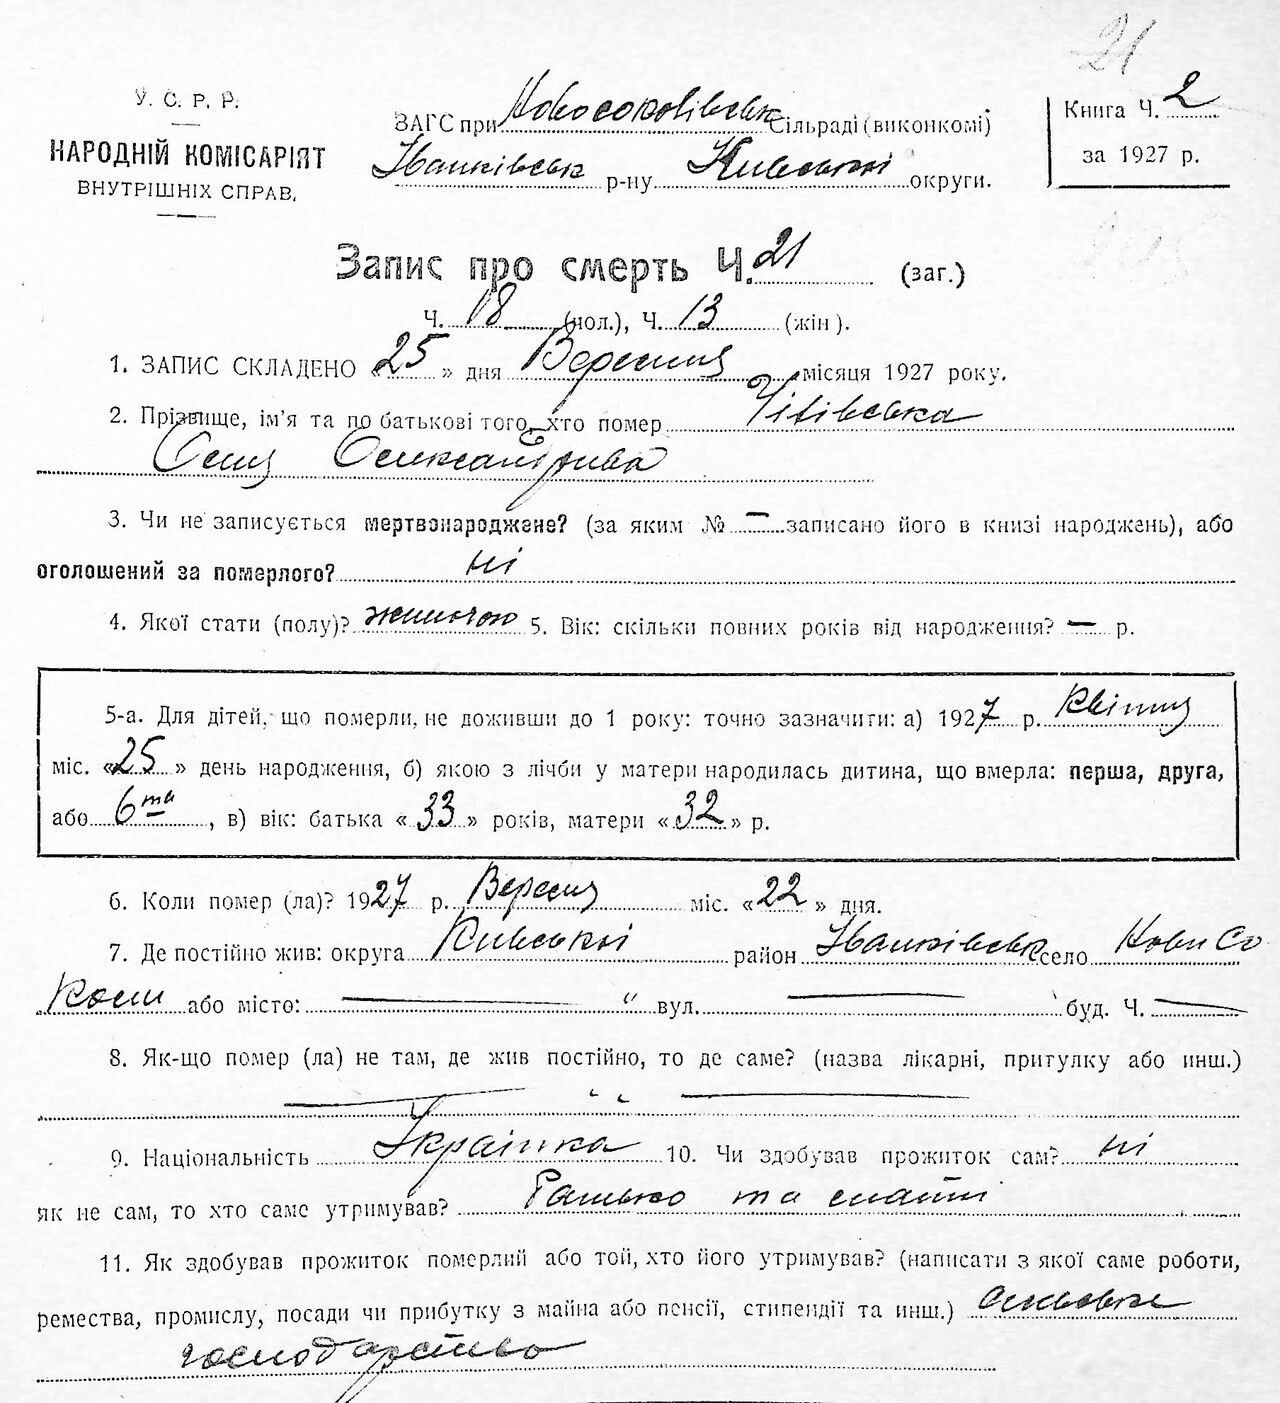 21
У. С. Р. Р.
НАРОДНІЙ КОМІСАРІЯТ
ВНУТРІШНІХ СПРАВ.
ЗАГС при Новосоколівськ Сільраді (виконкомі)
Іванківськ р-ну Київської округи.
Книга Ч. 2
за 1927 р.
Запис про смерть Ч. 21 (заг.)
Ч. 18 (пол.), Ч. 13 (жін).
1. ЗАПИС СКЛАДЕНО «25» дня Вересня місяця 1927 року.
2. Прізвище, ім'я та по батькові того, хто помер
Олександрівна
3. Чи не записується мертвонароджене? (за яким № — записано його в книзі народжень), або
оголошений за померлого? ні
4. Якої стати (полу)? жиночою 5. Вік: скільки повних років від народження? — р.
5-а. Для дітей, що померли, не доживши до 1 року: точно зазначити: а) 1927 р. Квітня
міс. «25» день народження, б) якою з лічби у матери народилась дитина, що вмерла: перша, друга,
або 6та, в) вік: батька «33» років, матери «32» р.
6. Коли помер (ла)? 1927 р. Вересня міс. «22» дня.
7. Де постійно жив: округа Київської район Іванківськ село Нови Со
коли або місто: — " вул. — буд. Ч. —
8. Як-що помер (ла) не там, де жив постійно, то де саме? (назва лікарні, притулку або инш.)
9. Національність Українка 10. Чи здобував прожиток сам? ні
як не сам, то хто саме утримував? та
11. Як здобував прожиток померлий або той, хто його утримував? (написати з якої саме роботи,
ремества, промислу, посади чи прибутку з майна або пенсії, стипендії та инш.)
господарство